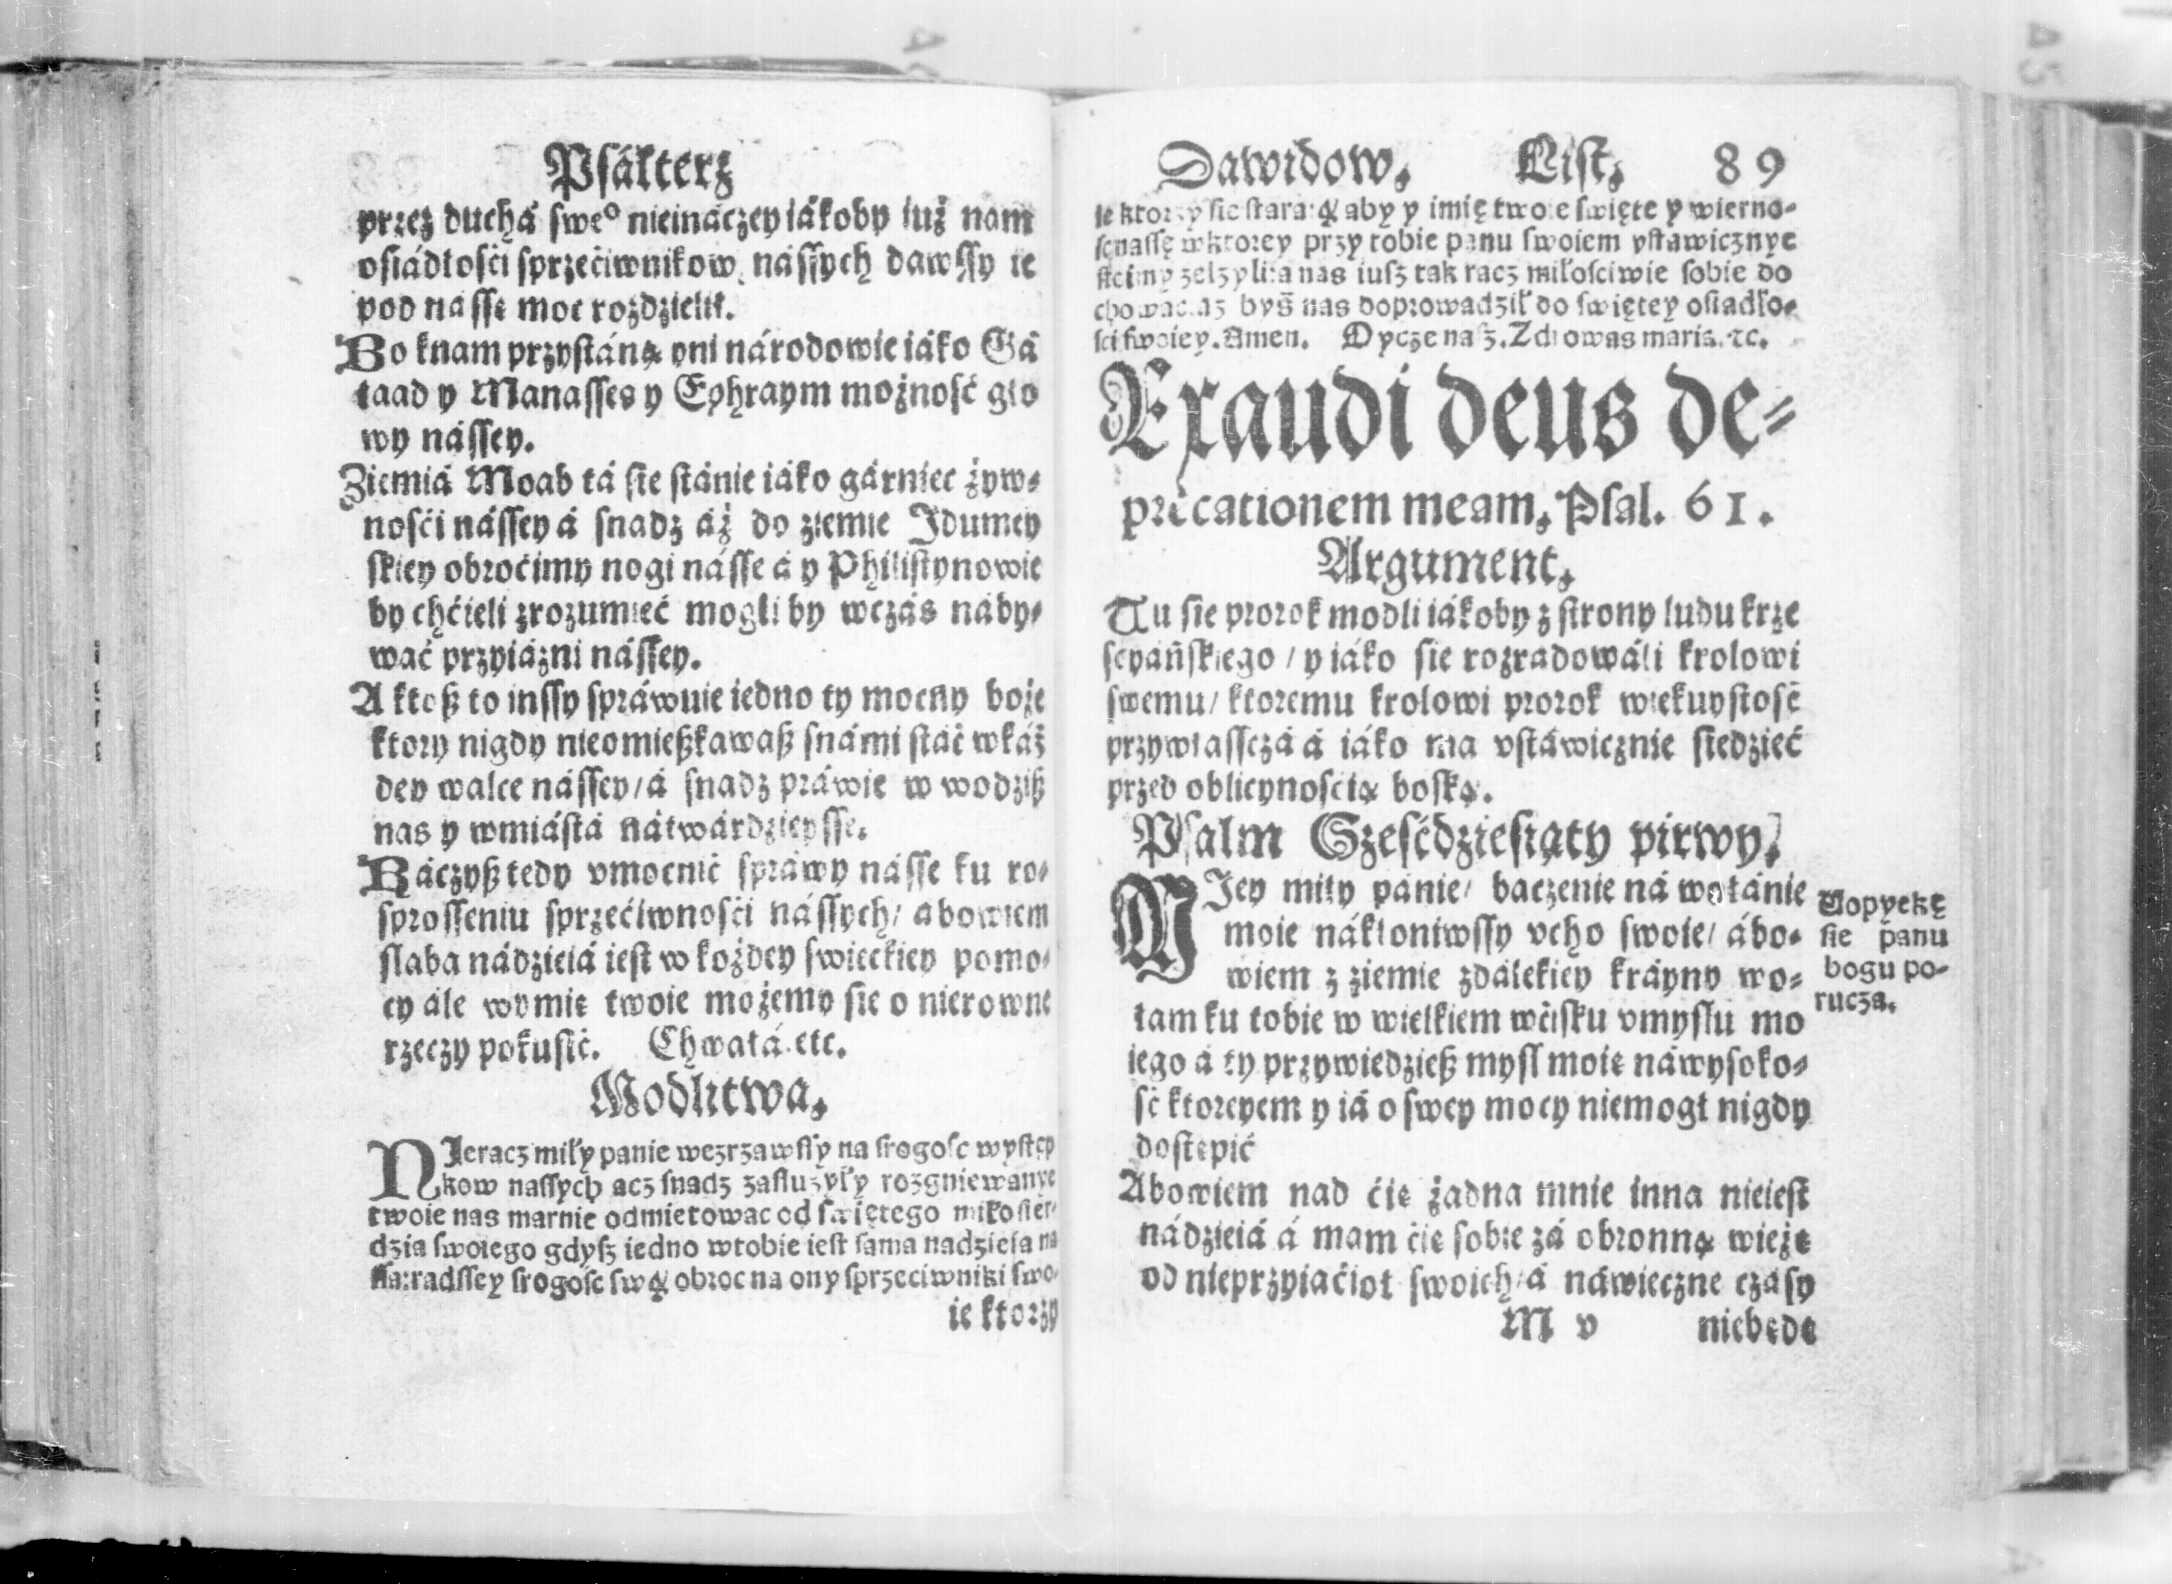 Psálterz
przez duchá swe° nieináczey iákoby iuż nam
osiádłości sprzećiwnikow nászych dawszy ie
pod násſę moc rozdzielił.
Bo knam przystáną oni národowie iáko Gá
laad y Manasses y Ephraym możność gło
wy nássey.
Ziemiá Moab tá sie stánie iáko gárniec żyw⸗
nośći nássey á snadz áż do ziemie Jdumey
skiey obroćimy nogi násse á y Philistynowie
by chćieli zrozumieć mogli by wczás náby⸗
wać przyiázni nássey.
A ktoß to inssy spráwuie iedno ty mocny boże
ktory nigdy nieomießkawaß snámi stáć wkáż
dey walce nássey/á snadz práwie w wodziß
nas y wmiástá nátwárdzieysse.
Ráczyß tedy vmocnić spráwy násse ku ro⸗
sprosseniu sprzećiwnośći nássych/ abowiem
słaba nádzieiá iest w kożdey swieckiey pomo⸗
cy ále wymię twoie możemy sie o nierowne
rzeczy pokusić. Chwałá.etc.
Modlitwa.
NJeracz miły panie wezrzawssy na srogosc występ
kow nassych acz snadz zasłużyły rozgniewanye
twoie nas marnie odmietowac od swiętego miłosier⸗
dzia swoiego gdysz iedno wtobie iest sama nadzieia na
sza:radssey srogosc swą obroc na ony sprzeciwniki swo⸗
ie ktorzy
Dawidow. List. 89
ie ktorzy sie staraią aby y imię twoie swięte y wierno⸗
sc nassę wktorey przy tobie panu swoiem ystawicznye
stoimy zelzyli:a nas iusz tak racz miłosciwie sobie do
chowac.az bys nas doprowadził do swiętey osiadło⸗
sci swoiey.Amen. Oycze nasz.Zdrowas maria.ꝛc.
Exaudi deus de⸗
precationem meam. Psal. 61.
Argument.
Tu sie prorok modli iákoby z strony ludu krze
sćyáńskiego / y iáko sie rozradowáli krolowi
swemu/ ktoremu krolowi prorok wiekuystość
przywłassczá á iáko ma vstáwicznie siedzieć
przed oblicznośćią boską.
Psalm Szesćdziesiąty pirwy.
MJey miły pánie/ baczenie ná wołánie
moie nákłoniwssy vcho swoie/ ábo⸗
wiem z ziemie zdálekiey kráyny wo⸗
łam ku tobie w wielkiem wćisku vmysłu mo
iego á ty przywiedzieß mysl moię náwysoko⸗
sć ktoreyem y iá o swey mocy niemogł nigdy
dostępić
Abowiem nad ćię żadna mnie inna nieiest
nádzieiá á mam ćię sobie zá obronną wieżę
od nieprzyiaćioł swoich/á náwieczne czásy
M v niebędę
Wopyekę
sie panu
bogu po⸗
rucza.